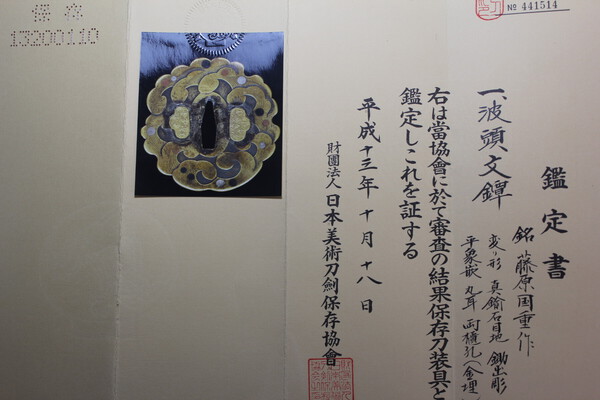 № 441514
鑑定書
一、波頭文鐔
銘 藤原国重作
変り形 真鍮石目地 鋤出彫
平象嵌 丸耳 両櫃孔(金埋)
右は當協會に於て審査の結果保存刀装具と
鑑定しこれを証する
平成十三年十月十八日
財團法人 日本美術刀劍保存協會
保存
13200110